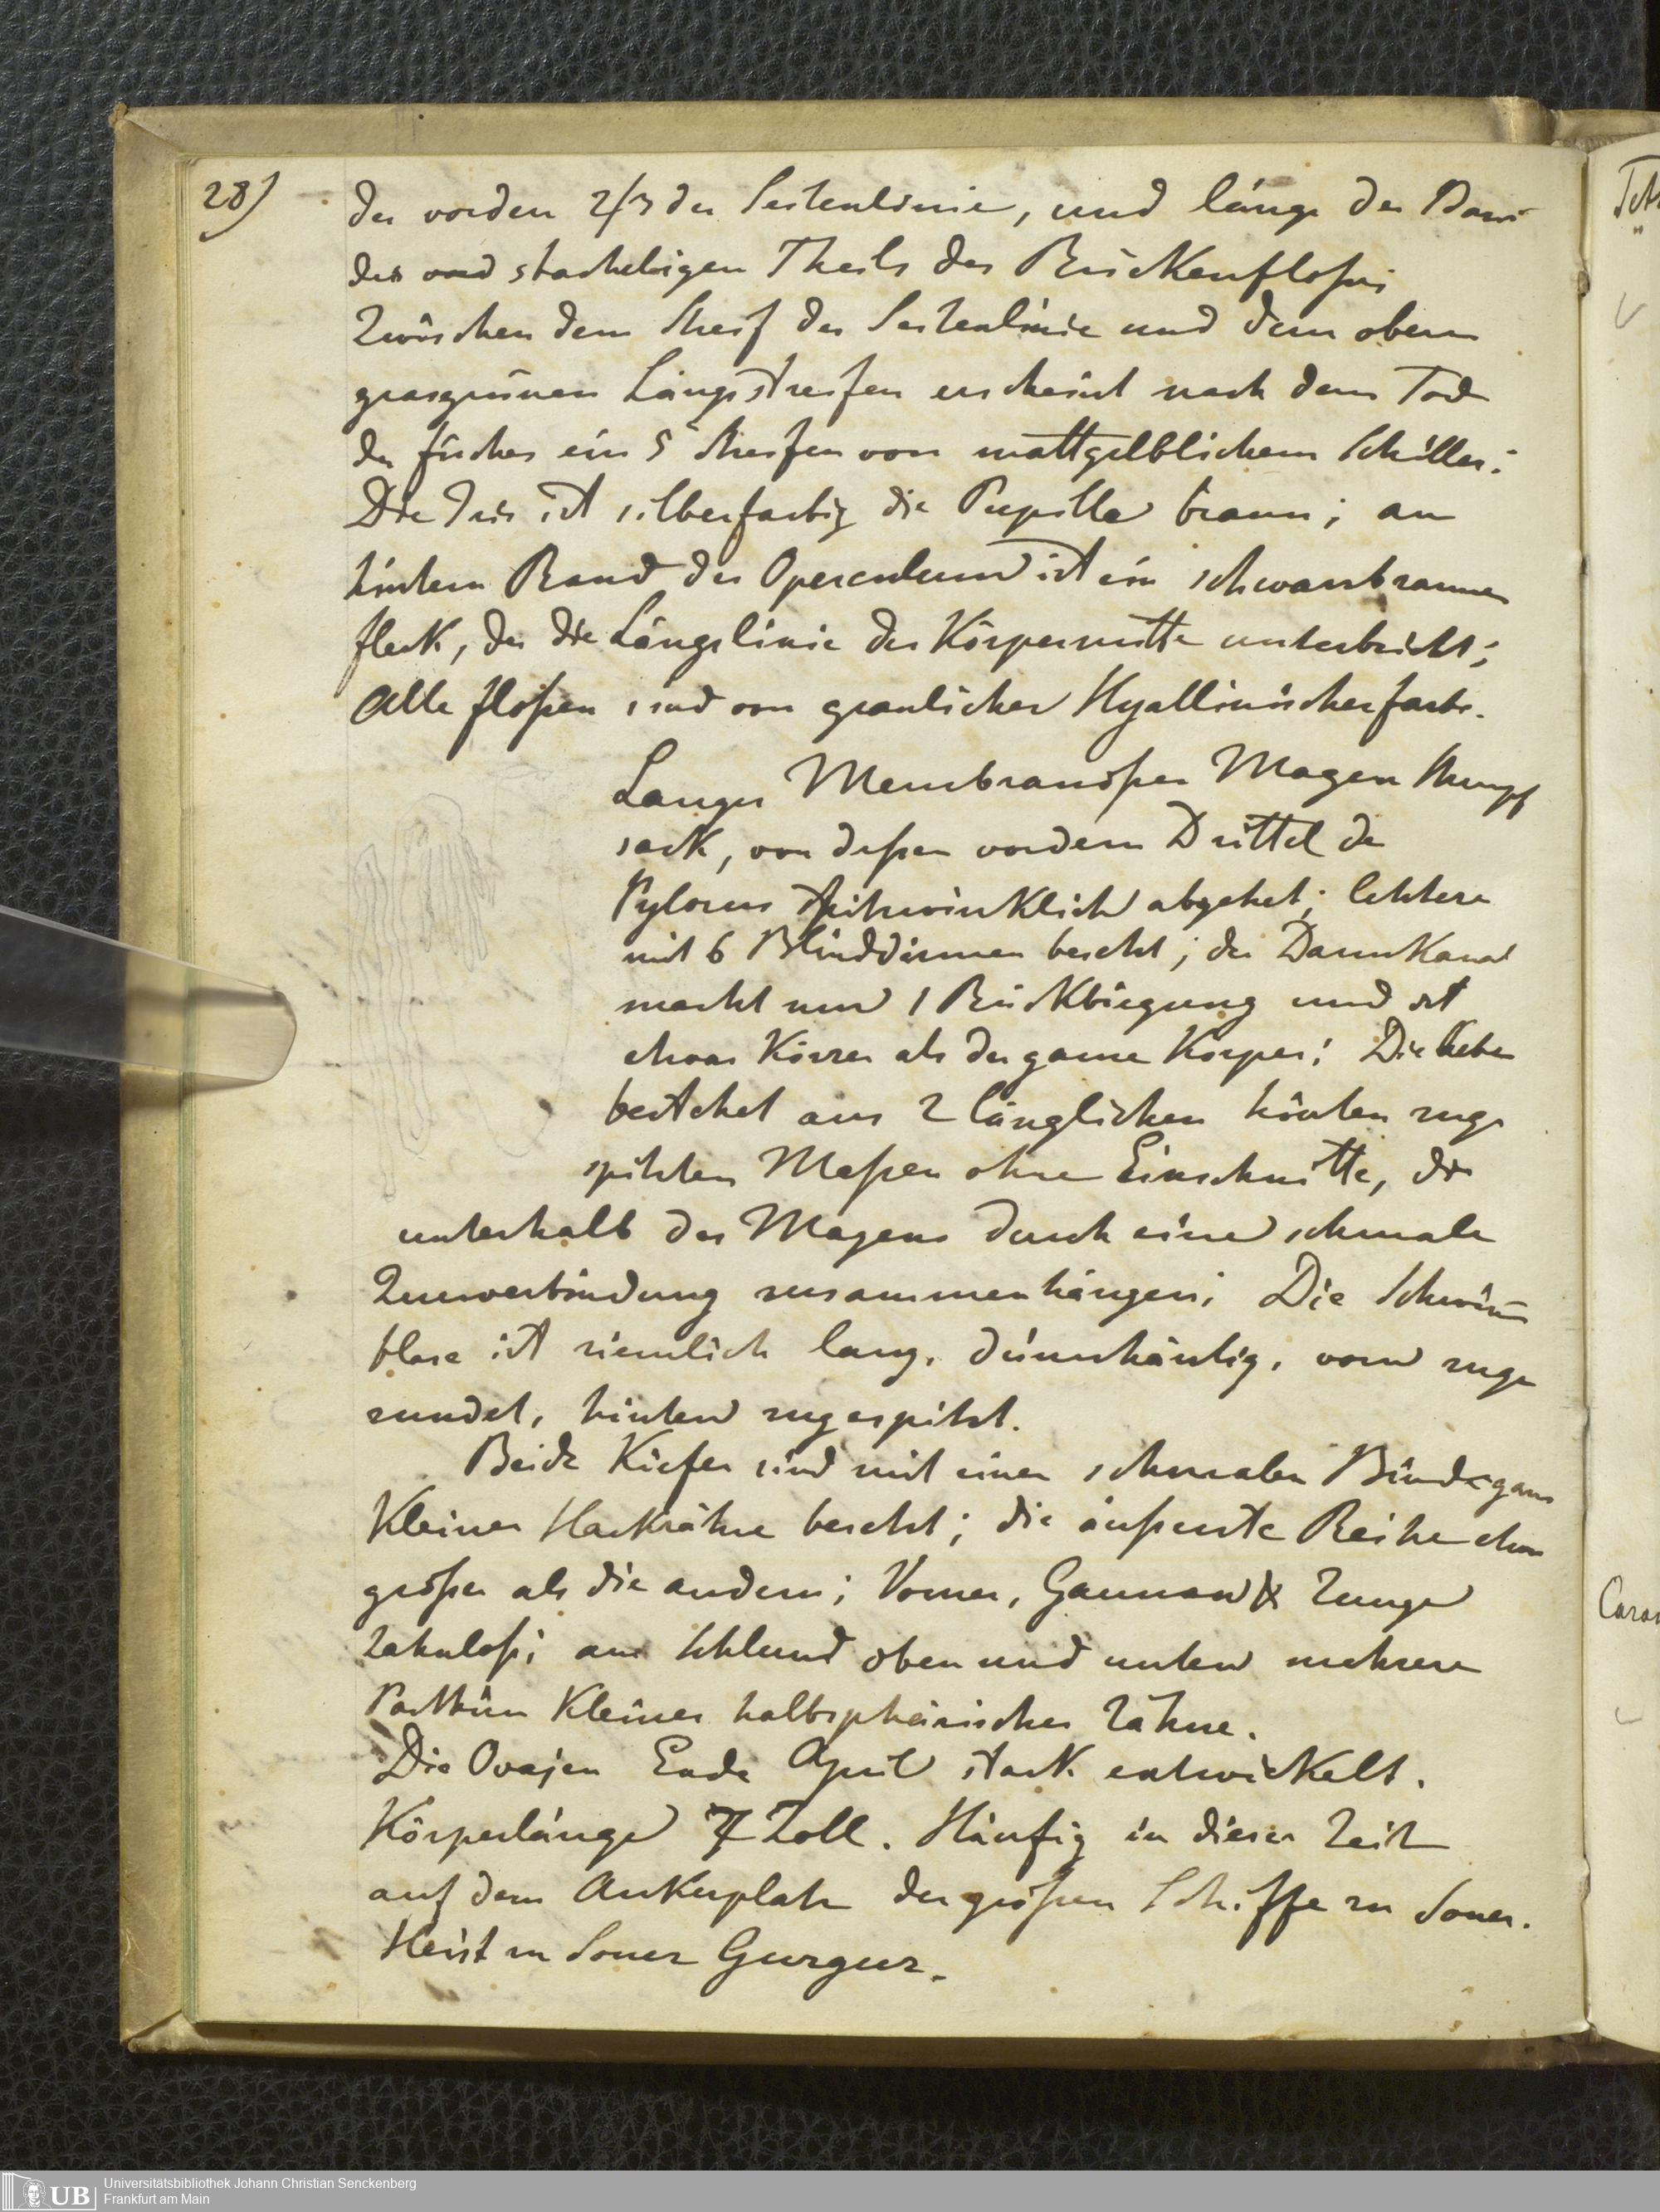 28)
der vordern 2/3 der Seitenlinie, und längs der Basis
des stacheligen Theils der Rückenflosse;
Zwischen dem Streif der Seitenlinie und dem obern
grasgrünen Längsstreifen erscheint nach dem Tod
des fisches ein 5 Streifen von mattgelblichem Schiller;
Die Iris ist silberfarbig die Pupille braun; am
hintern Rand des Operculum ist ein schwarzbrauner
fleck, der die Längslinie der Körpermitte unterbricht;
Alle flossen sind von graulicher Hyallinischer farbe.
Langer Membranoser Magen Stumpf
sack, von dessen vordern Drittel der
Pylorus spitzwinklich abgehet; letzterer
mit 6 Blinddärmen besetzt; der Darmkanal
macht nur 1 Rückbiegung und ist
etwas Körzer als der ganze Körper; Die Leber
bestehet aus 2 länglichen hinten zuge
spitzten Massen ohne Einschnitte, die
unterhalb des Magens durch eine schmale
Querverbindung zusammenhängen; Die Schwim
blase ist ziemlich lang, dünnhäutig, vorn zuge
rundet, hinten zugespitzt.
Beide Kiefer sind mit einer schmalen Binde ganz
Kleiner Hackzähne besetzt; die äusserste Reihe etwas
grösser als die andern; Vomer, Gaumen & Zunge
Zahnlos; am Schlund oben und unten mehrere
Parthien Kleiner halbsphärischer Zähne.
Die Ovarien Ende April stark entwickelt.
Körperlänge 7 Zoll. Häufig in dieser Zeit
auf dem Ankerplatz der grössern Schiffe zu Souez.
Heist in Souez Gurgur.
Universitätsbibliothek Johann Christian Senckenberg
Frankfurt am Main
UB